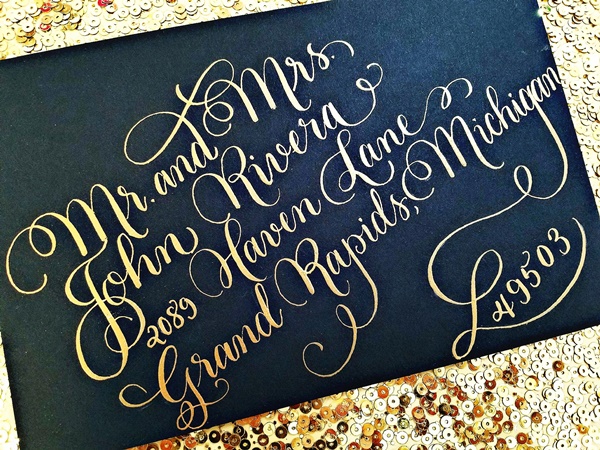 Mr. and Mrs.
John Rivera
2089 Haven Lane
Grand Rapids, Michigan
49503